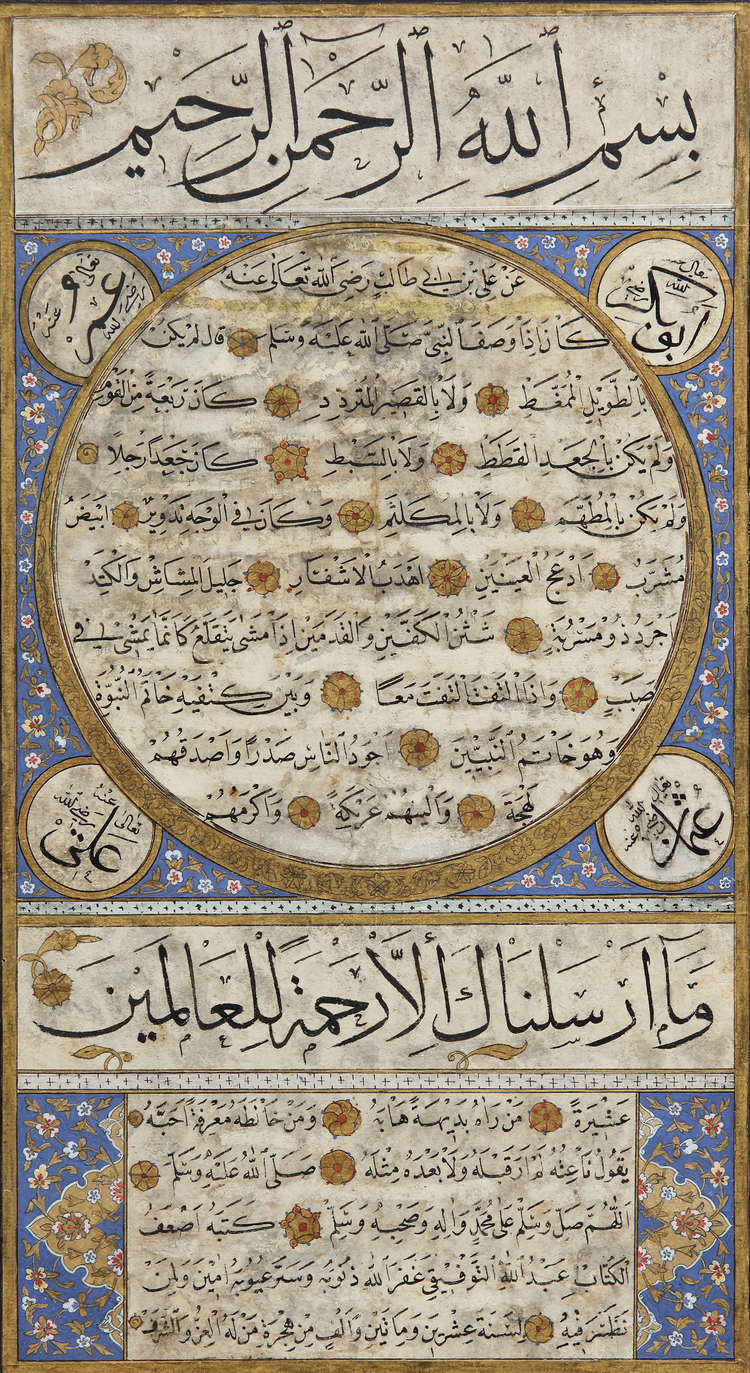 بِسْمِ اللهِ الرَّحْمٰنِ الرَّحِيمِ
ابو بكر رضي الله تعالى عنه
عمر رضي الله تعالى عنه
عن علي بن ابي طالب رضي الله تعالى عنه
كان اذا وصف النبي صلى الله عليه وسلم قال لم يكن
بالطويل الممغط ولا بالقصير المتردد كان ربعة من القوم
ولم يكن بالجعد القطط ولا بالسبط كان جعدا رجلا
ولم يكن بالمطهم ولا بالمكلثم وكان في الوجه تدوير ابيض
مشرب ادعج العينين اهدب الاشفار جليل المشاش والكتد
اجرد ذو مسربة شثن الكفين والقدمين اذا مشى يتقلع كانما يمشي في
صبب واذا التفت التفت معا وبين كتفيه خاتم النبوة
وهو خاتم النبيين اجود الناس صدرا واصدقهم
لهجة والينهم عريكة واكرمهم
عثمان رضي الله تعالى عنه
علي رضي الله تعالى عنه
وَمَا اَرْسَلْنَاكَ اِلَّا رَحْمَةً لِلْعَالَمِينَ
عشيرة من راه بديهة هابه ومن خالطه معرفة احبه
يقول ناعته لم ار قبله ولا بعده مثله صلى الله عليه وسلم
اللهم صل وسلم على محمد واله وصحبه وسلم كتبه اضعف
الكتاب عبد الله التوفيقي غفر الله ذنوبه وستر عيوبه امين ولمن
نظر فيه لسنة عشرين وماتين والف من هجرة من له العز والشرف